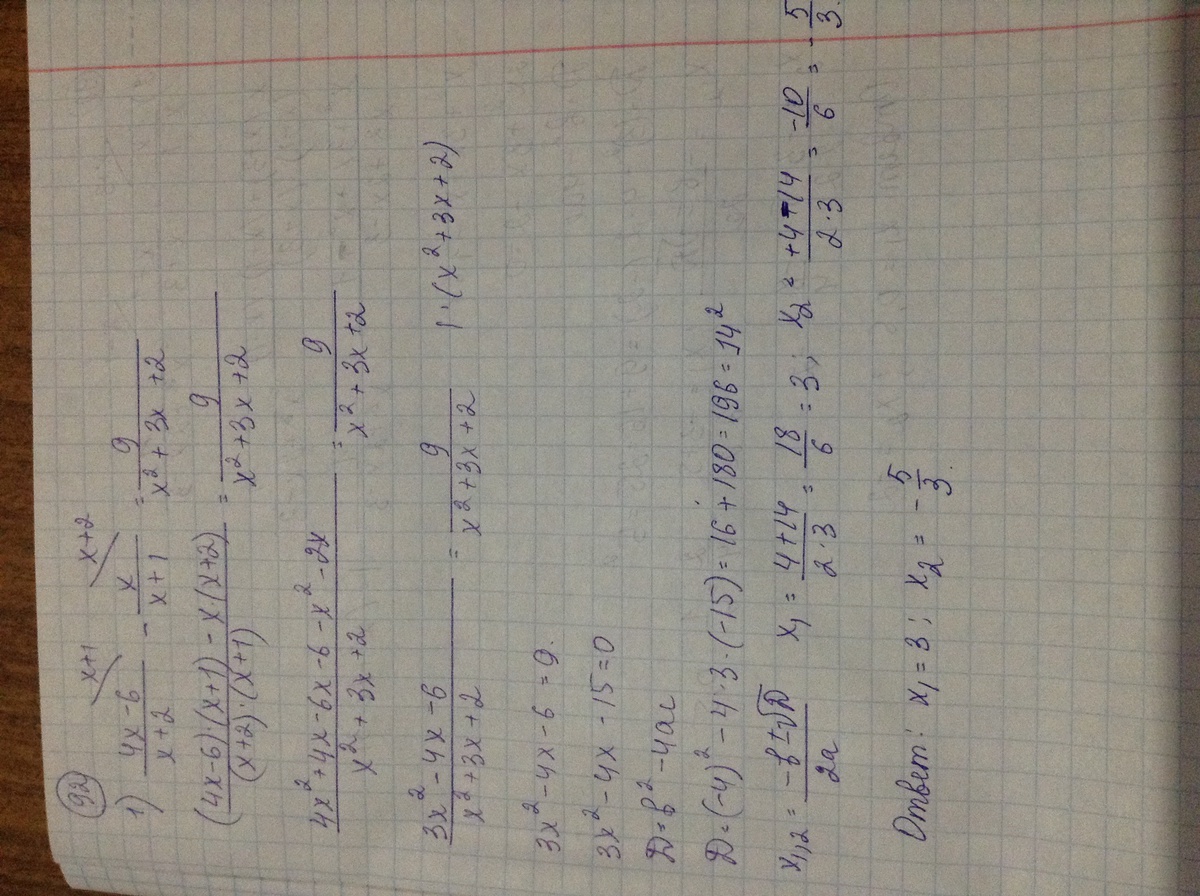 92
1) (4x-6)/(x+2) - x/(x+1) = 9/(x²+3x+2)   x+1   x+2
((4x-6)·(x+1) - x·(x+2))/((x+2)·(x+1)) = 9/(x²+3x+2)
(4x²+4x-6x-6-x²-2x)/(x²+3x+2) = 9/(x²+3x+2)
(3x²-4x-6)/(x²+3x+2) = 9/(x²+3x+2)   | · (x²+3x+2)
3x²-4x-6=9.
3x²-4x-15=0
D=b²-4ac
D=(-4)²-4·3·(-15)=16+180=196=14²
x₁,₂ = (-b±√D)/2a   x₁ = (4+14)/(2·3) = 18/6 = 3;   x₂ = (+4-14)/(2·3) = -10/6 = -5/3.
Ответ: x₁=3; x₂=-5/3.